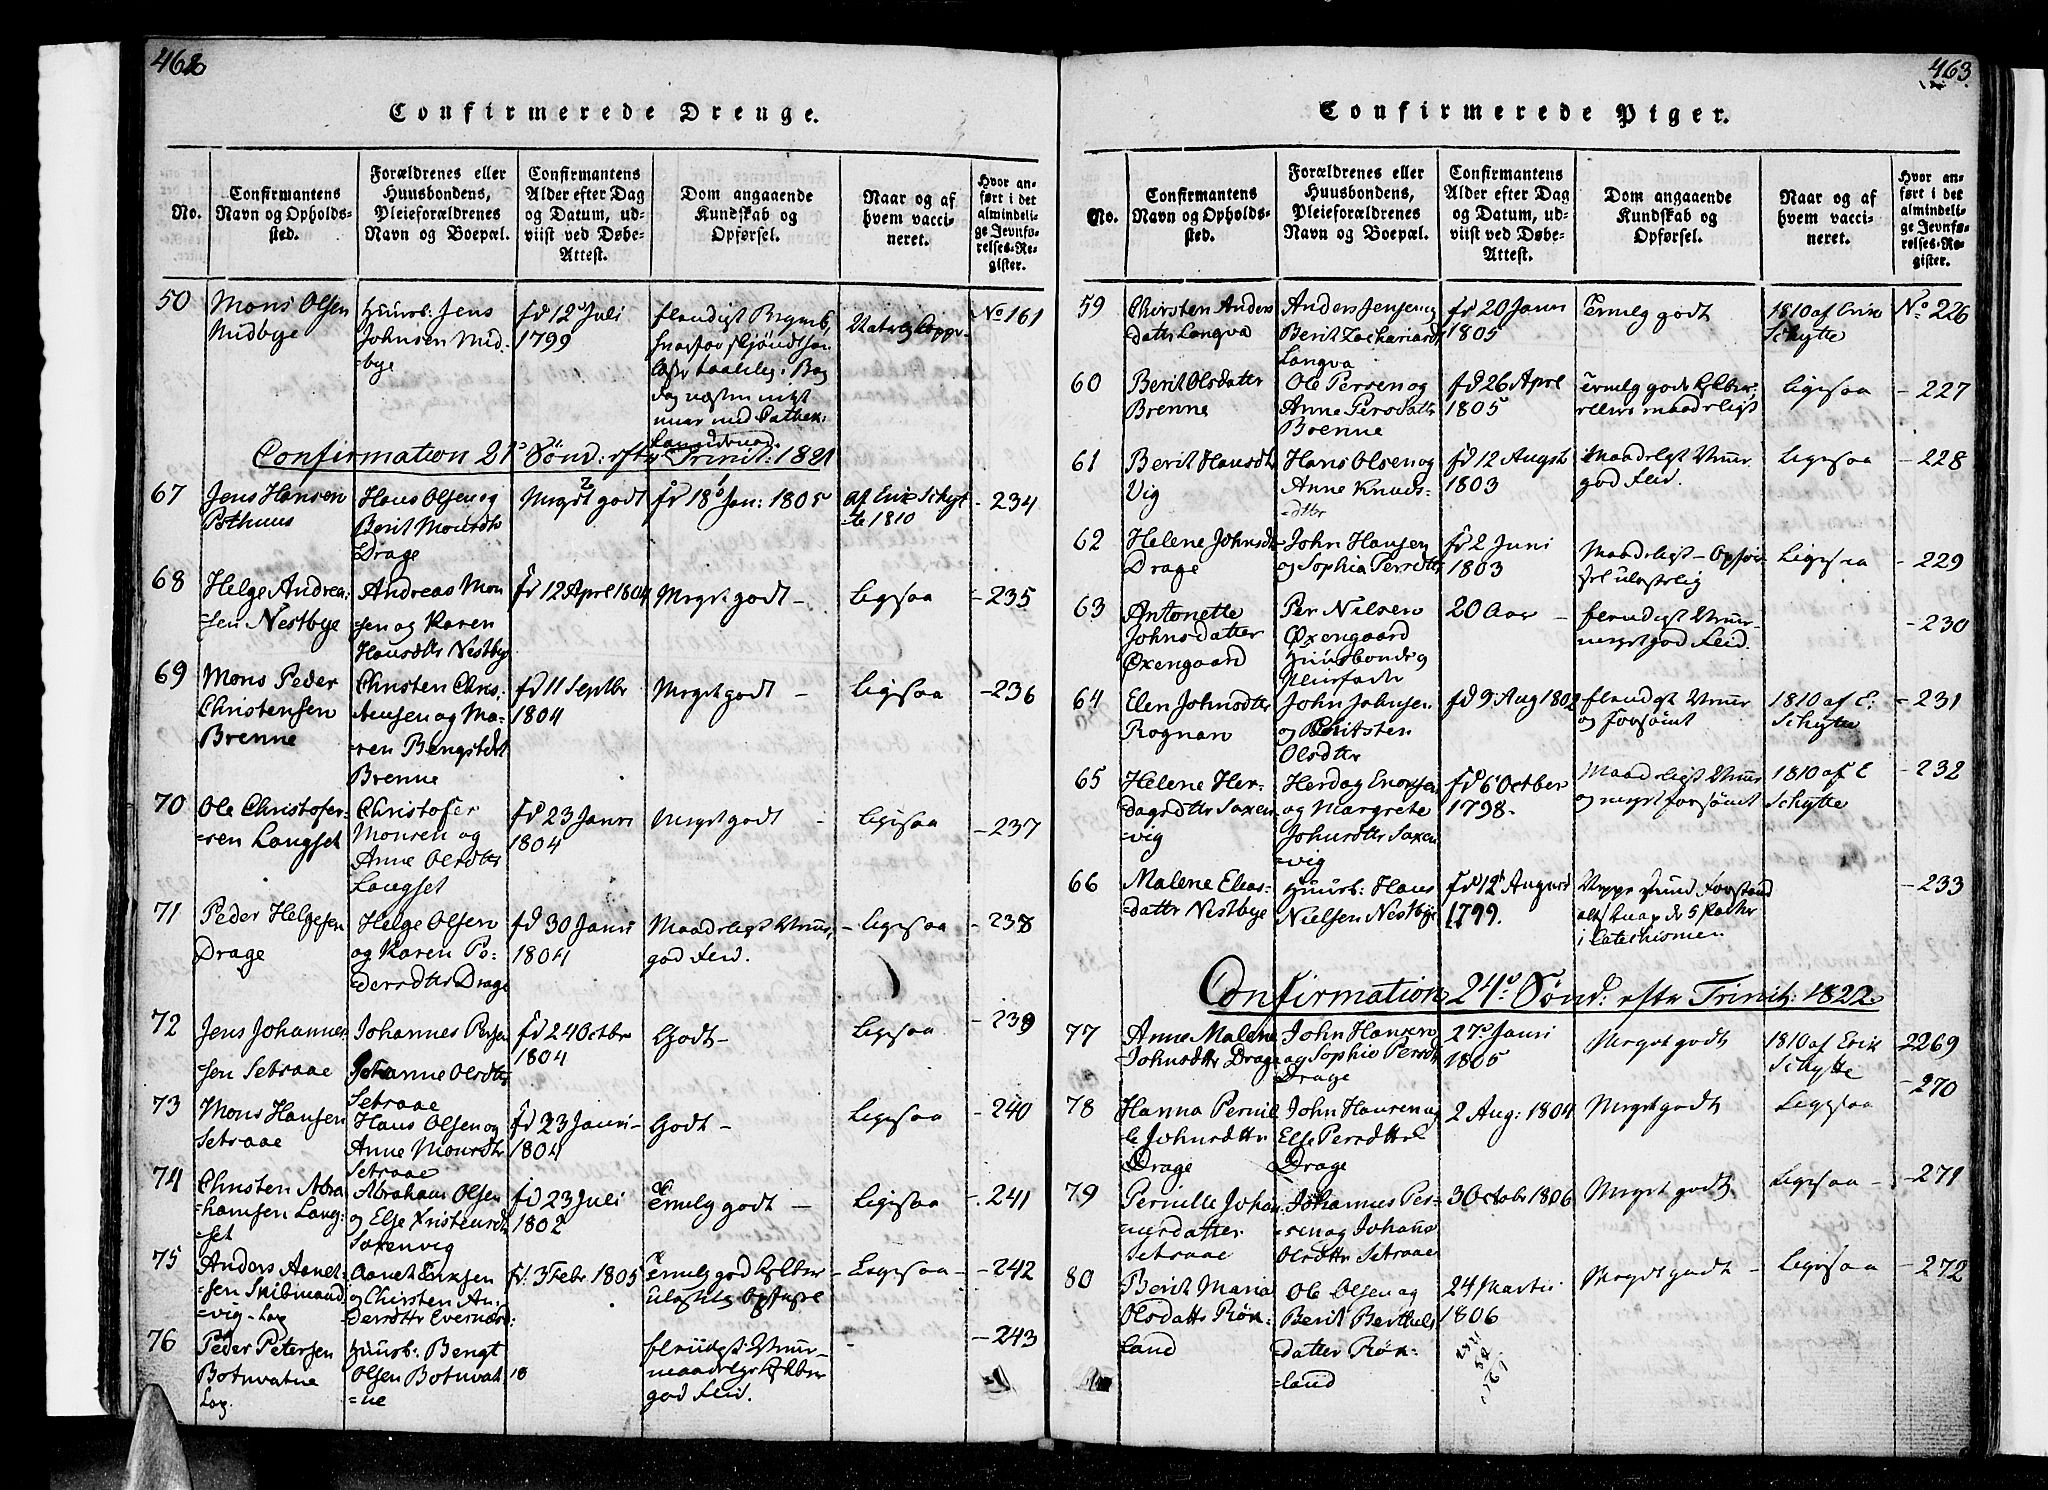 462
Confirmerede Drenge.
No.
Confirmantens
Navn og Opholds-
sted.
Forældrenes eller
Huusbondens,
Pleieforældrenes
Navn og Boepæl.
Confirmantens
Alder efter Dag
og Datum, ud-
viist ved Døbe-
Attest.
Dom angaaende
Kundskab og
Opførsel.
Naar og af
hvem vacci-
neret.
Hvor an-
ført i det
almindeli-
ge Jevnfø-
relses-Re-
gister.
50
Mons Olsen
Midbye
Huusb: Jens
Johnsen Mid-
-bye
fd 12 Juli
1799
No 161
Confirmation 21d Sönd: eftr Trinit: 1821
67
Jens Hansen
Pothuus
Hans Olsen og
Berit Monsdtr
Drage
Meget godt
fd 18d Jan: 1805
af Erik Schyt
-te 1810
- 234
68
Helge Andrea-
-sen Nestbye
Andreas Mon
-sen og Karen
Hansdtr Nestby
fd 12 Aprl 1804
Meget godt -
Ligesaa
- 235
69
Mons Peder
Christensen
Brenne
Christen Chris-
tensen og Ma-
-ren Bengtsdtr
Brenne
fd 11 Septbr
1804
Meget godt -
Ligesaa
- 236
70
Ole Christofer-
-sen Langset
Christofer
Monsen og
Anne Olsdtr
Langset
fd 23 Janri
1804
Meget godt -
Ligesaa
- 237
71
Peder Helgesen
Drage
Helge Olsen
og Karen Pe-
-dersdtr Drage
fd 30 Janri
1804
Maadeligt
god Flid.
- Ligesaa
- 238
72
Jens Johannes-
sen Setraae
Johannes Persen
Johanne Olsdtr
Setraae
fd 24 Octbr
1804
Godt -
Ligesaa
- 239
73
Mons Hansen
Setraae
Hans Olsen og
Anne Monsdtr
Setraae
fd 23 Janri -
1804
Godt -
Ligesaa
- 240
74
Christen Abra
-hamsen Lang-
-set
Abraham Olsen
og Else Kristensdtr
Saxenvig
fd 23 Juli
1802
Temelg godt -
Ligesaa
- 241
75
Anders Aanet-
-sen
-vig
Aanet Eriksen
og Chirsten An-
dersdtr Evernæs
fd. 3 Febr 1805
Temelg god
- Ligesaa -
- 242
76
Peder Petersen
Botnvatne
Huusb: Bengt
Olsen Botnvat
-ne
18
god Flid.
- 243
463
Confirmerede Piger.
No.
Confirmantens
Navn og Opholds-
sted.
Forældrenes eller
Huusbondens,
Pleieforældrenes
Navn og Boepæl.
Confirmantens
Alder efter Dag
og Datum, ud-
viist ved Døbe-
Attest.
Dom angaaende
Kundskab og
Opførsel.
Naar og af
hvem vacci-
neret.
Hvor an-
ført i det
almindeli-
ge Jevnfø-
relses-Re-
gister.
59
Chirsten Anders
datter Langva
Anders Jensen og
Berit Zachariasd
Langva
fd 20 Janri
1805
Temelg godt
1810 af Erik
Schytte
No 226
60
Berit Olsdatter
Brenne
Ole Persen og
Anne Persdattr
Brenne
fd 26 Aprl
1805
Temelg godt
maadeligt
Ligesaa
- 227
61
Berit Hansdtr
Vig
Hans Olsen og
Anne Knuds-
-dttr
fd 12 Augst
1803
Maadeligt
god Flid.
Ligesaa
- 228
62
Helene Johnsdtr
Drage
John Hansen
og Sophia Persdtr
fd 2 Juni
1803
Maadeligt - Opför
Ligesaa
- 229
63
Antonette
Johnsdatter
Oxengaard
Per Nilsen
Oxengaard
Huusbonde og
20 Aar -
god Flid.
- 230
64
Elen Johnsdtr
Rognan
John Johnsen
og
Olsdtter
fd 9 Aug 1802
og forsömt
1810 af E:
Schytte
- 231
65
Helene Her-
dagsdtr Saxen
-vig
Herdag Enoksen
og Margrete
Johnsdtr Saxen
-vig
fd 6 October
1798.
Maadeligt
og meget forsömt
1810 af E
Schytte
- 232
66
Malene Elias-
-datter Nestbye
Huusb: Hans
Nielsen Nestbye
fd 12 August
1799.
i Catechismen
- 233
Confirmation 24d Sönd: eftr Trinit: 1822.
77
Anne Malene
Johnsdtr Drage
John Hansen
og Sophia Persdtr
Drage
27d Janri
1805
Meget godt
1810 af Erik
Schytte
- 269
78
Hanna Pernil
-le Johnsdttr
Drage
John Hansen og
Else Persdttr
Drage
2 Aug: 1804
Meget godt
Ligesaa
- 270
79
Pernille Johan
-nesdatter
Setraae
Johannes Per-
-sen og Johana
Olsdttr Setraae
3 Octobr 1806
Meget godt
Ligesaa -
- 271
80
Berit Maria
Olsdattr Rök-
land
Ole Olsen og
Berit Berthels
datter Rök-
-land
24 Martii
1806
Meget godt -
Ligesaa
- 272